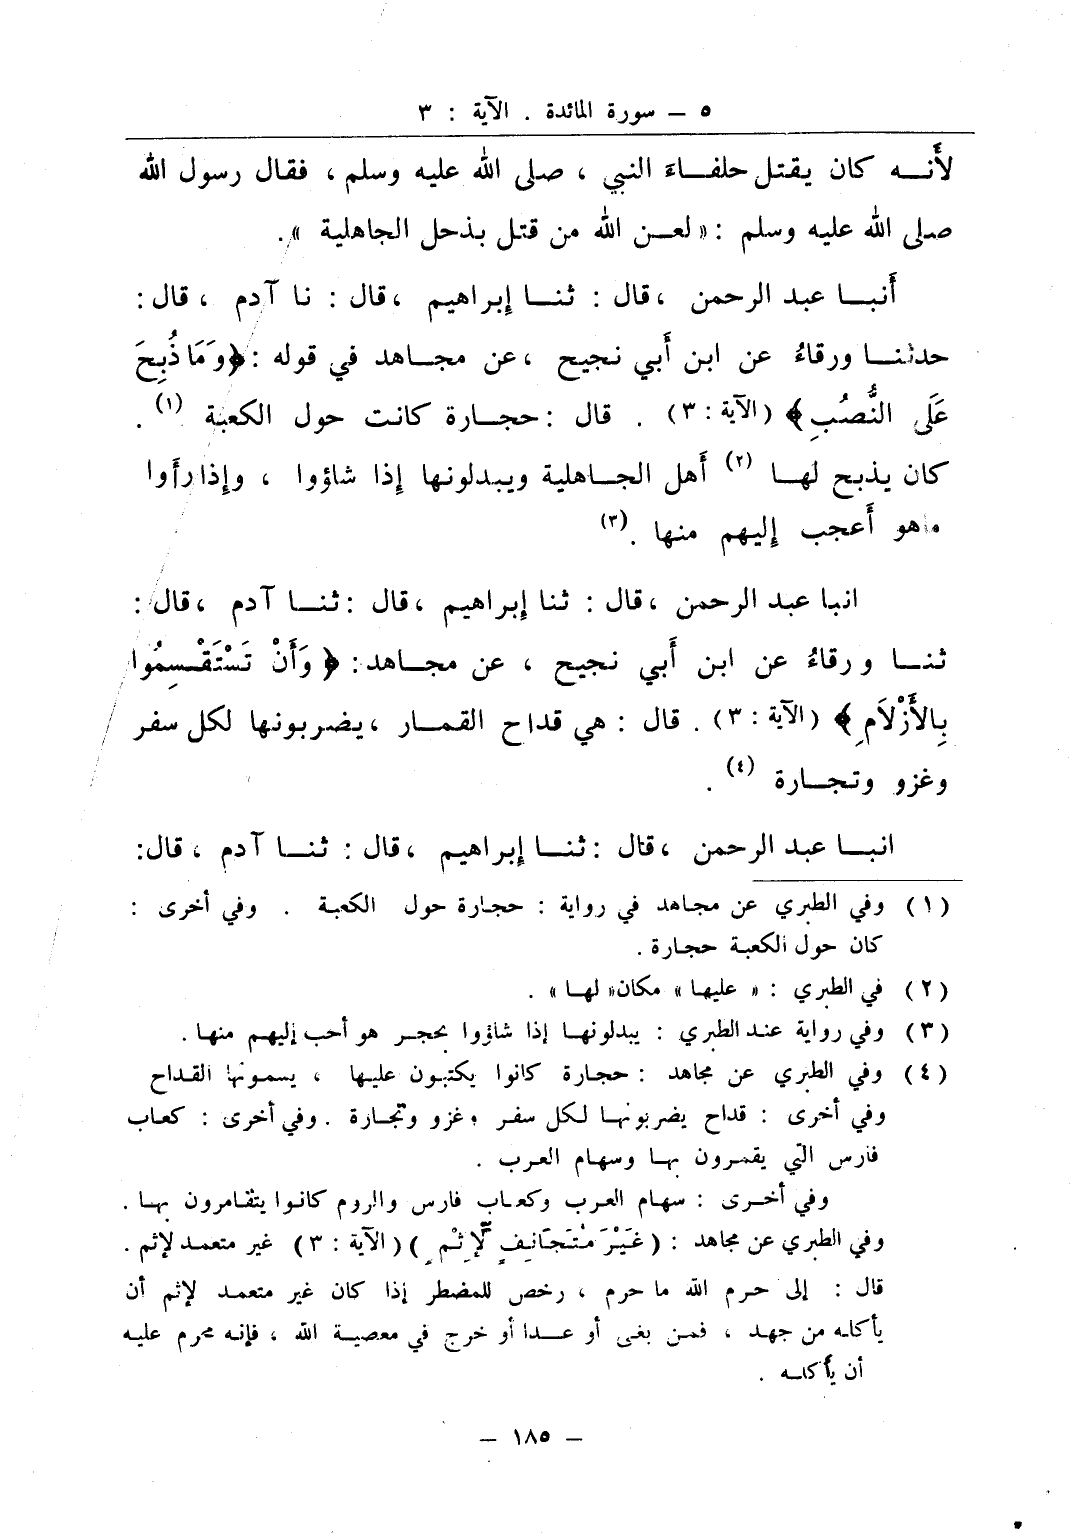 ٥ ــ سورة المائدة . الآية : ٣
لأَنــه كان يقتل حلفــاءَ النبي ، صلى الله عليه وسلم ، فقال رسول الله
صلى الله عليه وسلم : « لعــن الله من قتل بذحل الجاهلية » .
أَنبــا عبد الرحمن ، قال : ثنــا إبراهيم ، قال : نا آدم ، قال :
حدثنــا ورقاءُ عن ابن أَبي نجيح ، عن مجــاهد في قوله : ﴿ وَمَا ذُبِحَ
عَلَى النُّصُبِ ﴾ (الآية : ٣) . قال : حجــارة كانت حول الكعبة (١) .
كان يذبح لهــا (٢) أَهل الجــاهلية ويبدلونها إِذا شاؤوا ، وإِذا رأَوا
ما هو أَعجب إِليهم منها . (٣)
انبا عبد الرحمن ، قال : ثنا إبراهيم ، قال : ثنــا آدم ، قال :
ثنــا ورقاءُ عن ابن أَبي نجيح ، عن مجــاهد : ﴿ وَأَنْ تَسْتَقْسِمُوا
بِالأَزْلاَمِ ﴾ (الآية : ٣) . قال : هي قداح القمــار ، يضربونها لكل سفر
وغزو وتجــارة (٤) .
انبــا عبد الرحمن ، قال : ثنــا إبراهيم ، قال : ثنــا آدم ، قال :
(١) وفي الطبري عن مجاهد في رواية : حجارة حول الكعبة . وفي أخرى :
كان حول الكعبة حجارة .
(٢) في الطبري : « عليها » مكان « لها » .
(٣) وفي رواية عند الطبري : يبدلونها إذا شاؤوا بحجر هو أحب إليهم منها .
(٤) وفي الطبري عن مجاهد : حجارة كانوا يكتبون عليها ، يسمونها القداح
وفي أخرى : قداح يضربونها لكل سفر وغزو وتجارة . وفي أخرى : كعاب
فارس التي يقمرون بها وسهام العرب .
وفي أخرى : سهام العرب وكعاب فارس والروم كانوا يتقامرون بها .
وفي الطبري عن مجاهد : (غَيْرَ مُتَجَانِفٍ لإِثْمٍ ) (الآية : ٣) غير متعمد لإثم .
قال : إلى حرم الله ما حرم ، رخص للمضطر إذا كان غير متعمد لإثم أن
يأكله من جهد ، فمن بغى أو عدا أو خرج في معصية الله ، فإنه محرم عليه
أن يأكله .
ــ ١٨٥ ــ